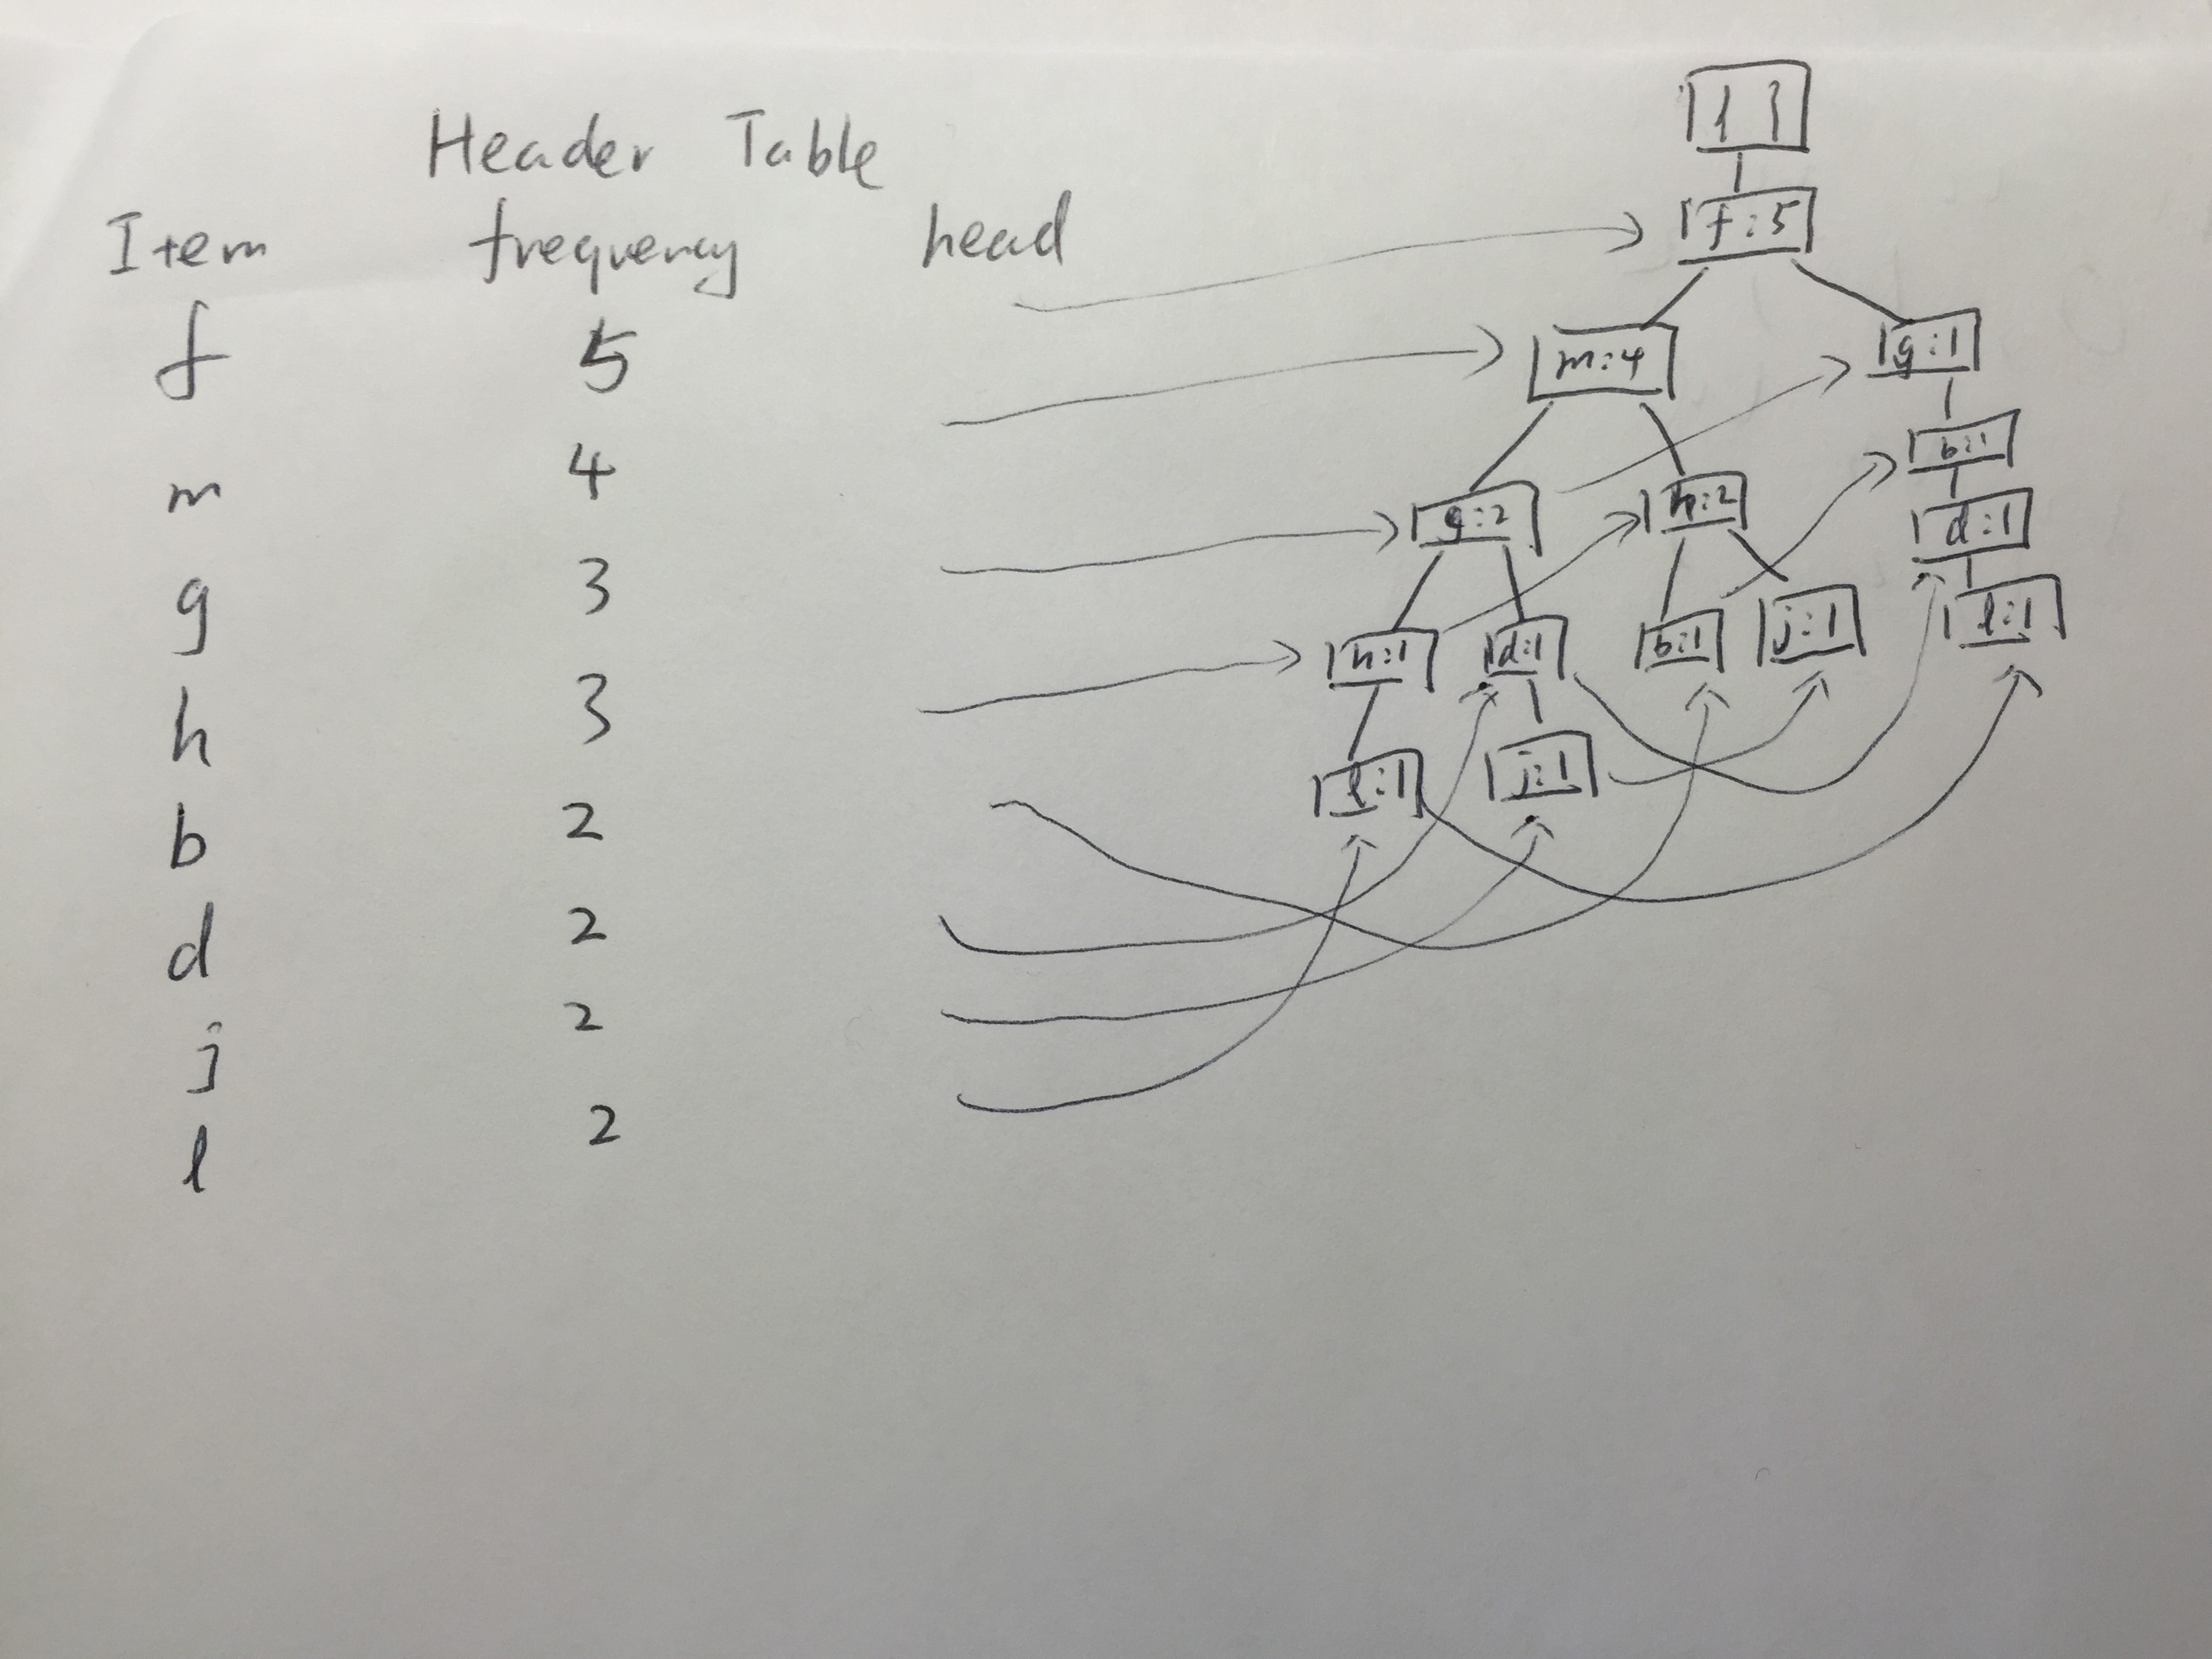 Header Table
Item frequency head
f 5
m 4
g 3
h 3
b 2
d 2
j 2
l 2
{ }
f:5
m:4 g:1
g:2 h:2 b:1
h:1 d:1 b:1 j:1 d:1
l:1 j:1 l:1